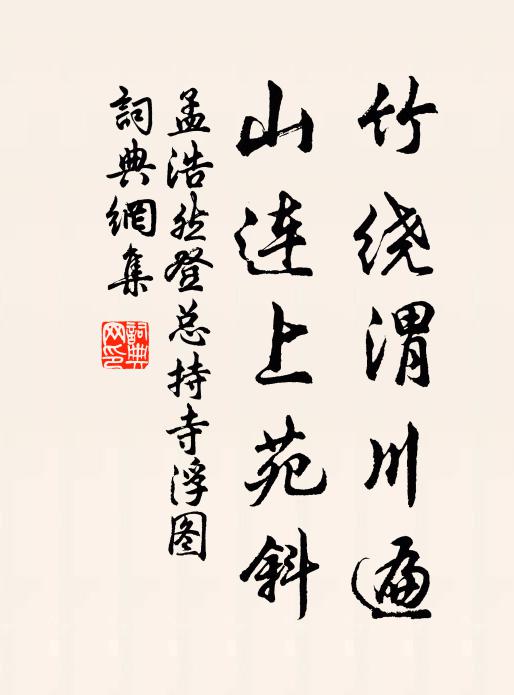 竹绕渭川遍
山连上苑斜
孟浩然登总持寺浮图
詞典網集
詞典网印